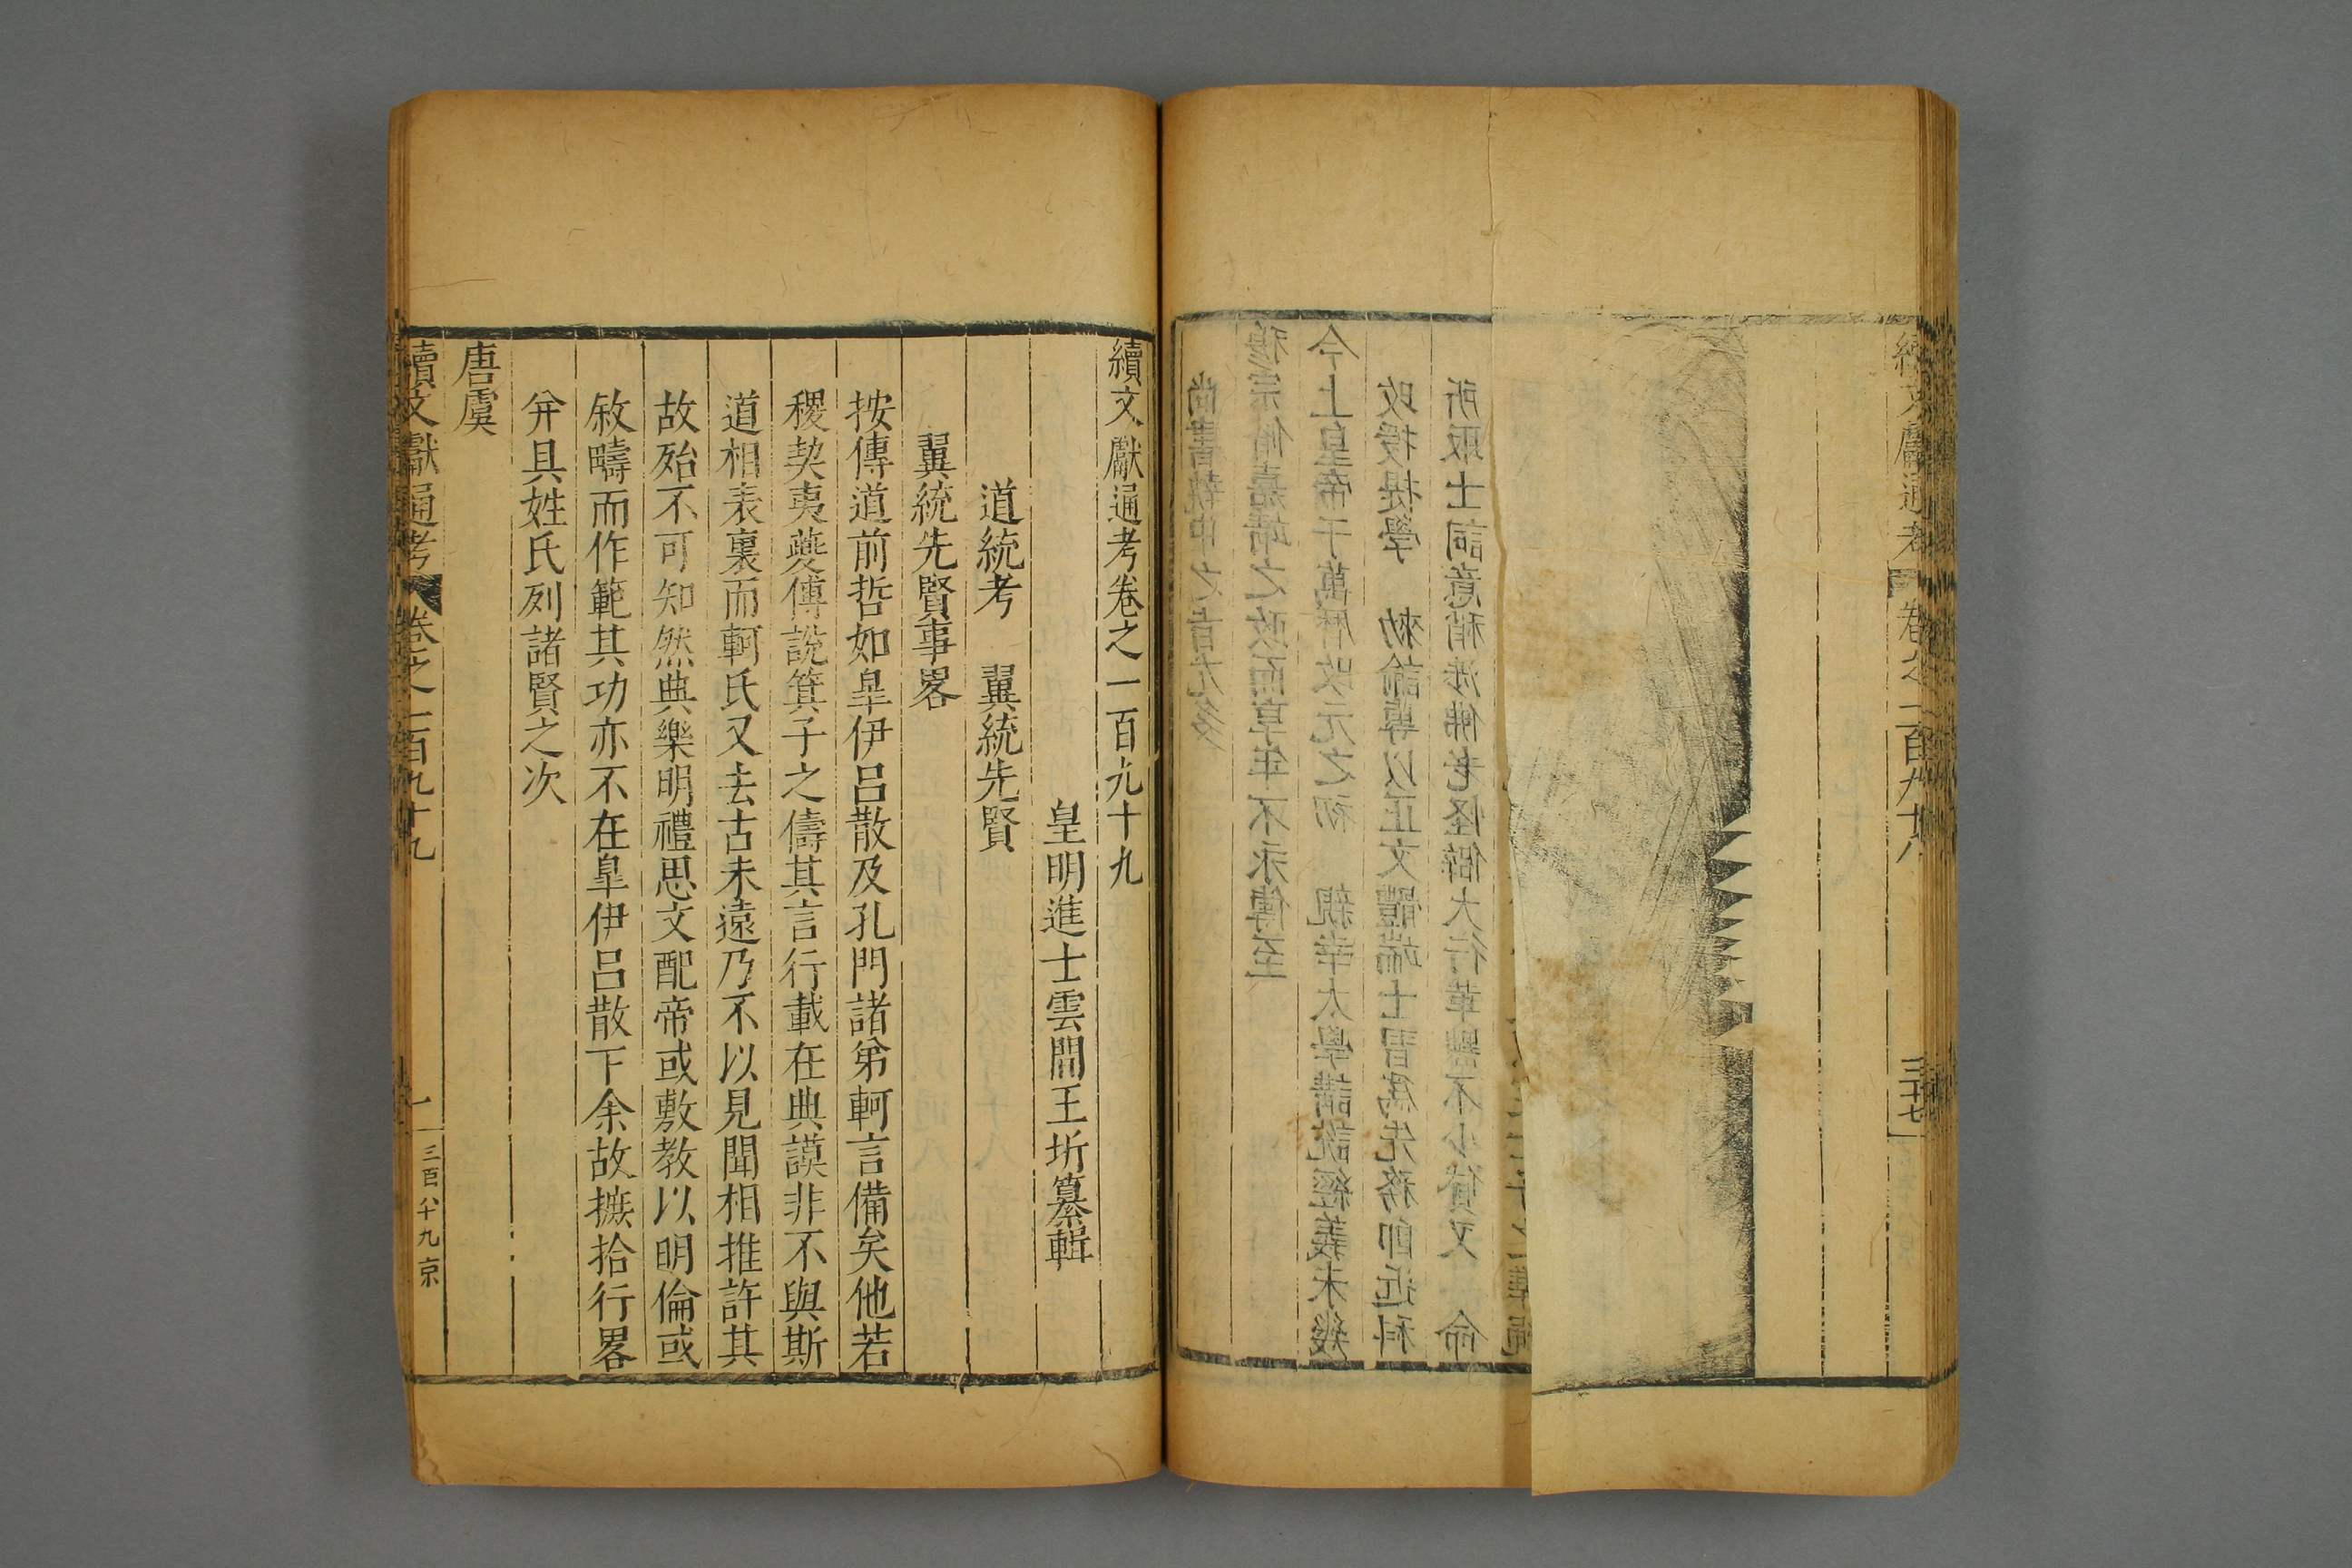 續文獻通考卷之一百九十九
皇明進士雲間王圻纂輯
道統考　翼統先賢
翼統先賢事畧
按傳道前哲如皐伊呂散及孔門諸弟軻言備矣他若
稷契夷夔傅說箕子之儔其言行載在典謨非不與斯
道相表裏而軻氏又去古未遠乃不以見聞相推許其
故殆不可知然典樂明禮思文配帝或敷教以明倫或
敘疇而作範其功亦不在皐伊呂散下余故摭拾行畧
并具姓氏列諸賢之次
唐虞
續文獻通考　卷之一百九十九　一　三百八十九　京
續文獻通考　卷之一百九十八　三十七
所取士詞意稍涉佛老怪僻大行革黜不少貸又　命
改授提學　勑諭專以正文體端士習爲先務即近科
今上皇帝于萬曆改元之初　親幸太學講説經義未幾
穆宗脩嘉靖之政而享年不永傳至
尚書執中之旨尤多